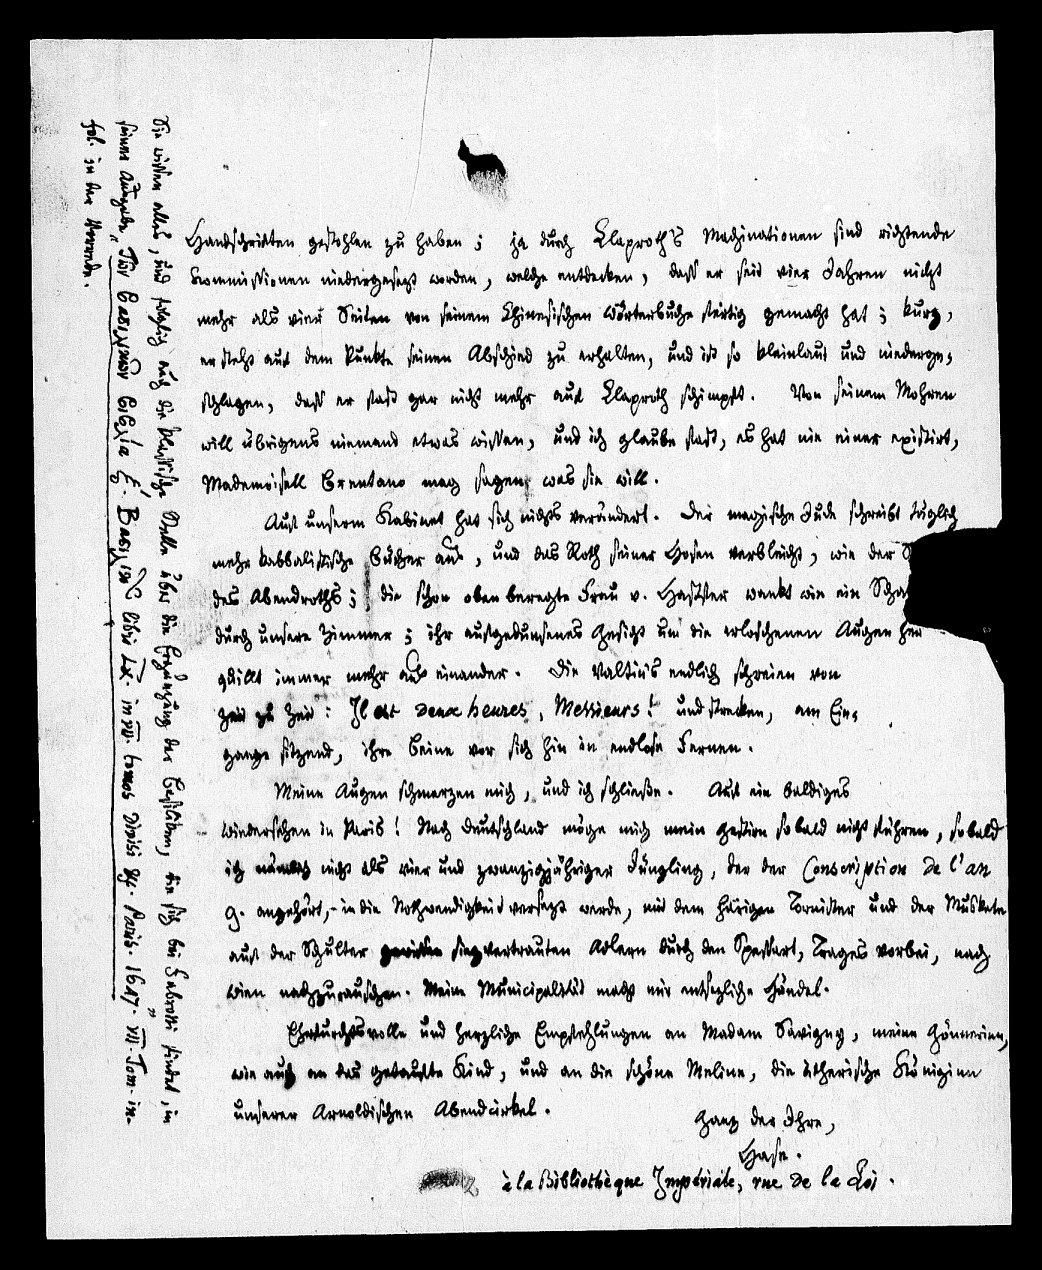 Handschriften gestohlen zu haben; ja durch Klaproth's Machinationen sind richtende
Kommissionen niedergesetzt worden, welche entdecken, daß er seit vier Jahren nicht
mehr als vier Seiten von seinem Chinesischen Wörterbuche fertig gemacht hat; kurz,
er steht auf dem Punkte seinen Abschied zu erhalten, und ist so kleinlaut und niederge-
schlagen, daß er fast gar nicht mehr auf Klaproth schimpft. Von seinem Mohren
will übrigens niemand etwas wissen, und ich glaube fast, es hat nie einer existirt,
Mademoisell Brentano mag sagen was sie will.
Auf unserm Kabinet hat sich nichts verändert. Der magische Jude schreibt täglich
mehr kabbalistische Bücher aus, und das Roth seiner Hosen verbleicht, wie der
des Abendroths; die schon oben beregte Frau v. Hastfer wankt wie ein
durch unsere Zimmer; ihr aufgedunsenes Gesicht um die erloschenen Augen her
quillt immer mehr aus einander. Die Valtüis endlich schreien von
Zeit zu Zeit: Il est deux heures, Messieurs! und strecken, am Ein-
gange sitzend, ihre Beine vor sich hin in endlose Fernen.
Meine Augen schmerzen mich, und ich schließe. Auf ein baldiges
Wiedersehen in Paris! Nach Deutschland möge mich mein Gestirn sobald nicht führen, sobald
ich nämlich nicht als vier und zwanzigjähriger Jüngling, der der Conscription de l'an
9. angehört, in die Nothwendigkeit versetzt werde, mit dem härigen Tornister und der Muskete
auf der Schulter siegvertrauten Adlern durch den Spessart, Trages vorbei, nach
Wien nachzurauschen. Meine Municipalität macht mir entsetzliche Händel.
Ehrfurchtsvolle und herzliche Empfehlungen an Madam Savigny, meine Gönnerinn,
wie auch an das getaufte Kind, und an die schöne Meline, die ätherische Königinn
unserer Arnoldischen Abendcirkel.
Ganz der Ihre,
Hase.
à la Bibliothèque Impériale, rue de la Loi.
Sie wissen alles, und folglich auch die klassische Stelle über die Ergänzung der Basiliken, die sich bei Fabrotti findet, in
seiner Ausgabe „Τῶν βασιλικῶν βιβλία ξ'. Βασιλικῶν libri LX. in VII. tomos divisi &c. Paris. 1647. VII. Tom. in-
fol. in der Vorrede.